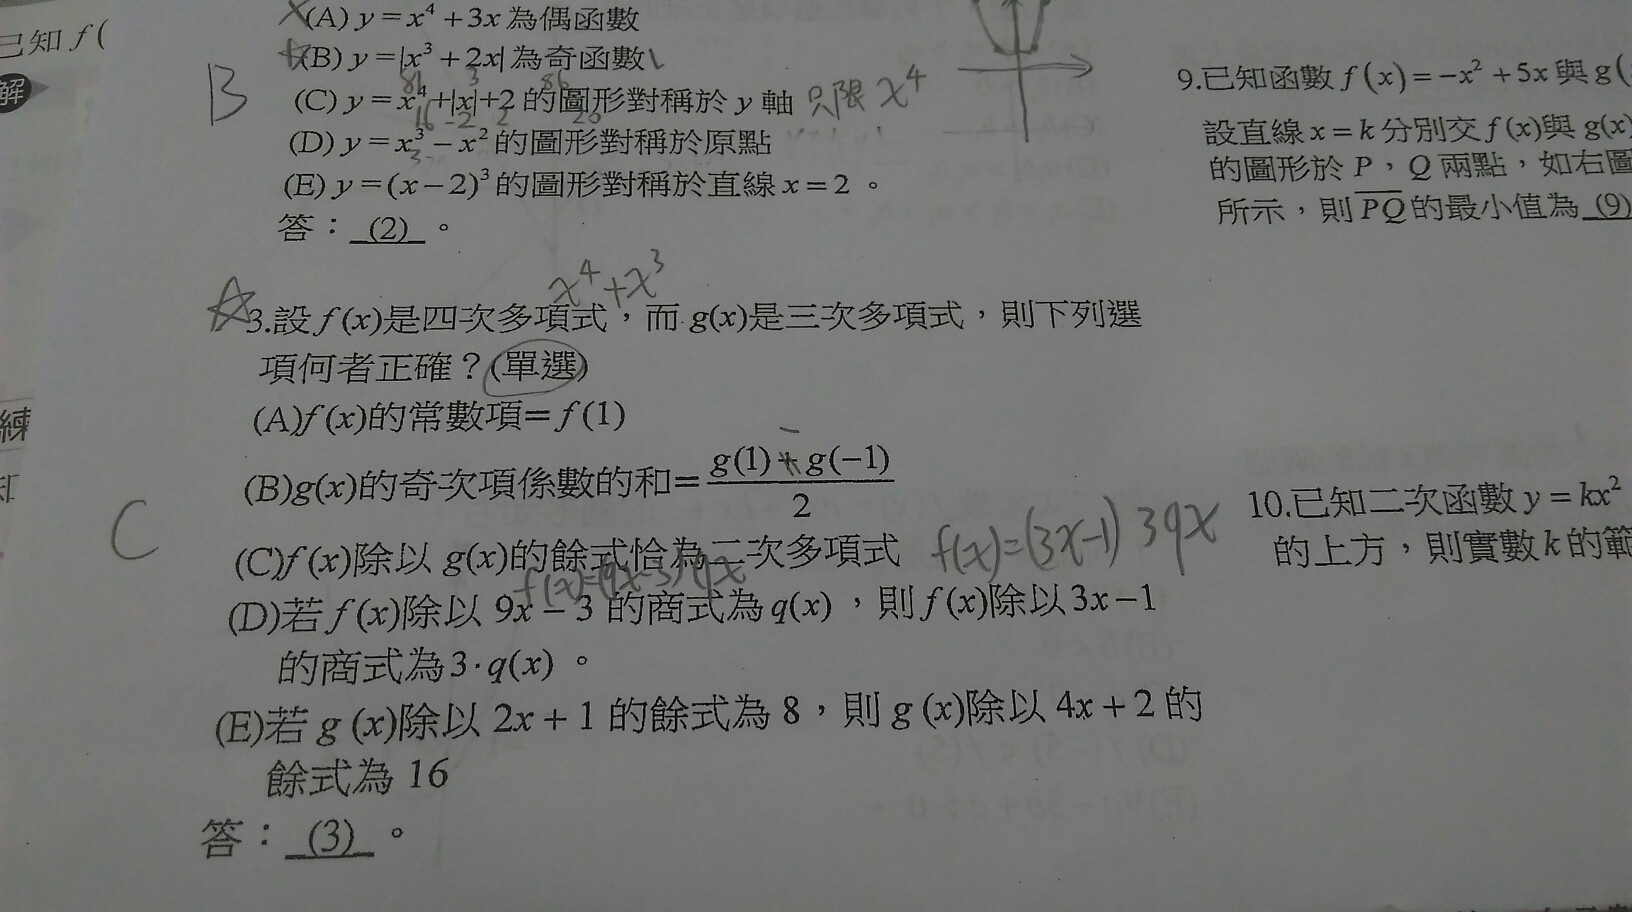 已知 f (
解
練
(A) y = x⁴ + 3x 為偶函數
(B) y = |x³ + 2x| 為奇函數
B
(C) y = x⁴ + |x| + 2 的圖形對稱於 y 軸 只限 x⁴
(D) y = x³ − x² 的圖形對稱於原點
(E) y = (x − 2)³ 的圖形對稱於直線 x = 2 。
答：(2) 。
x⁴ + x³
3.設 f (x)是四次多項式，而 g(x)是三次多項式，則下列選
項何者正確？(單選)
(A)f (x)的常數項= f (1)
(B)g(x)的奇次項係數的和= (g(1) + g(−1))/2
C
(C)f (x)除以 g(x)的餘式恰為二次多項式 f(x)=(3x-1) 39x
f(x)=(9x-3) 9x
(D)若 f (x)除以 9x − 3 的商式為 q(x) ，則 f (x)除以 3x − 1
的商式為 3 · q(x) 。
(E)若 g (x)除以 2x + 1 的餘式為 8，則 g (x)除以 4x + 2 的
餘式為 16
答：(3) 。
9.已知函數 f (x) = −x² + 5x 與 g(
設直線 x = k 分別交 f (x)與 g(x)
的圖形於 P，Q 兩點，如右圖
所示，則 PQ 的最小值為 (9)
10.已知二次函數 y = kx²
的上方，則實數 k 的範